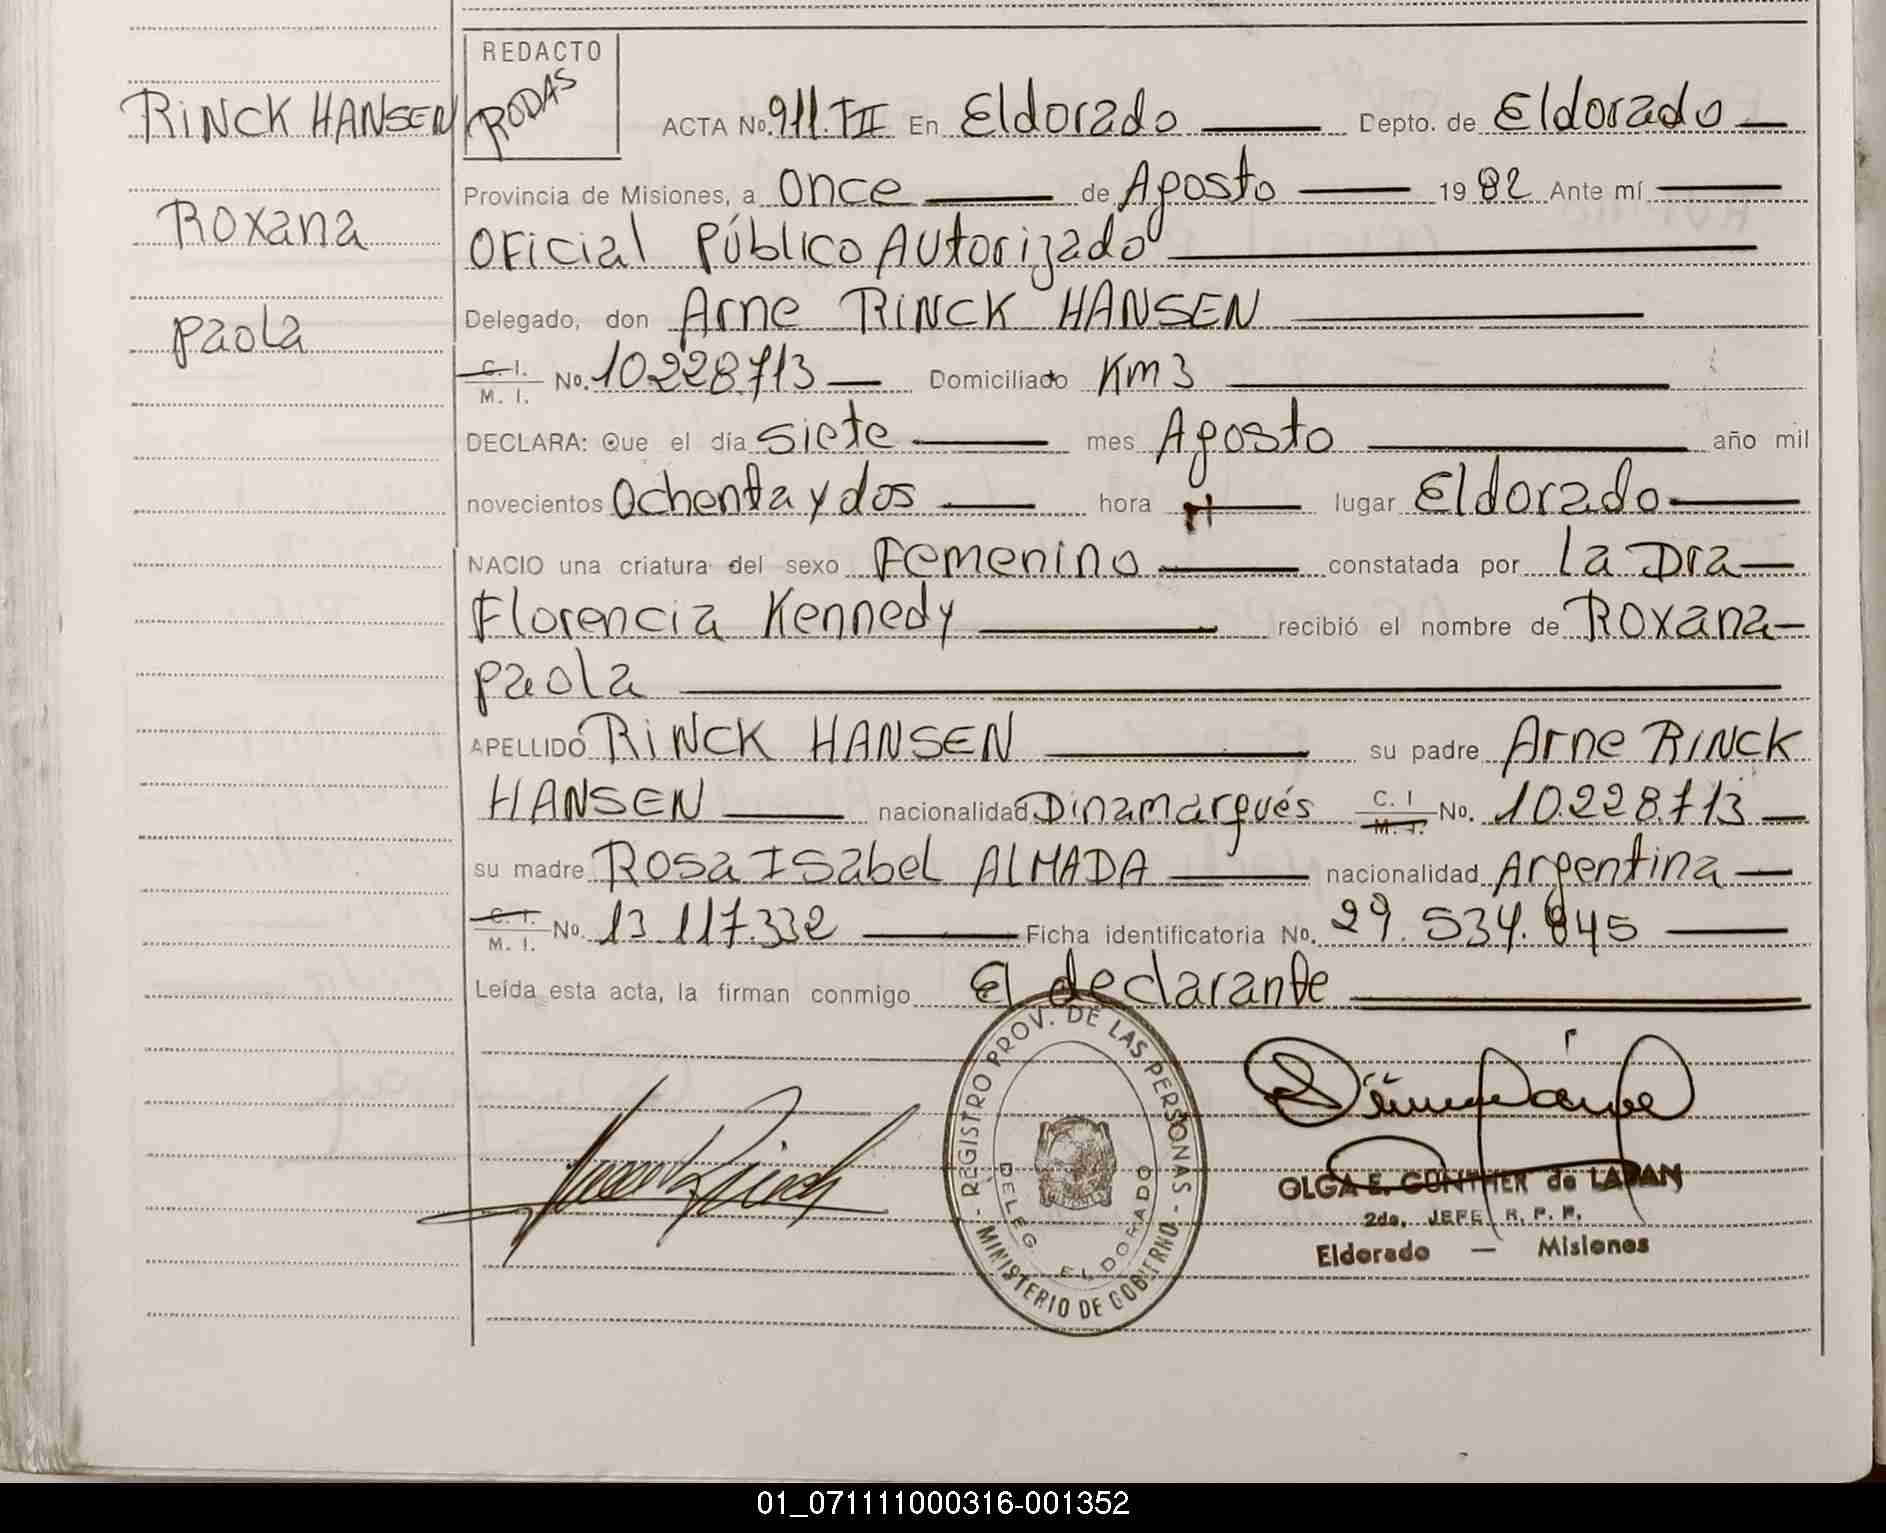 REDACTO
RODAS
RINCK HANSEN
Roxana
paola
ACTA No. 911. TII En Eldorado Depto. de Eldorado
Provincia de Misiones, a once de Agosto 1982 Ante mí
Oficial Público Autorizado
Delegado, don Arne RINCK HANSEN
C. I. M. I. No. 10.228.713 Domiciliado Km 3
DECLARA: Que el día siete mes Agosto año mil
novecientos Ochenta y dos hora lugar Eldorado
NACIO una criatura del sexo Femenino constatada por la Dra
Florencia Kennedy recibió el nombre de Roxana
paola
APELLIDO RINCK HANSEN su padre Arne RINCK
HANSEN nacionalidad Dinamarqués C. I M. I. No. 10.228.713
su madre Rosa Isabel ALMADA nacionalidad Argentina
C. I. M. I. No. 13 117.332 Ficha identificatoria No. 29.534.845
Leída esta acta, la firman conmigo El declarante
REGISTRO PROV. DE LAS PERSONAS - MINISTERIO DE GOBIERNO -
DELEG. ELDORADO
MISIONES
OLGA E. GUNTHER de
2da. JEFE R. P. P.
Eldorado — Misiones
01_071111000316-001352